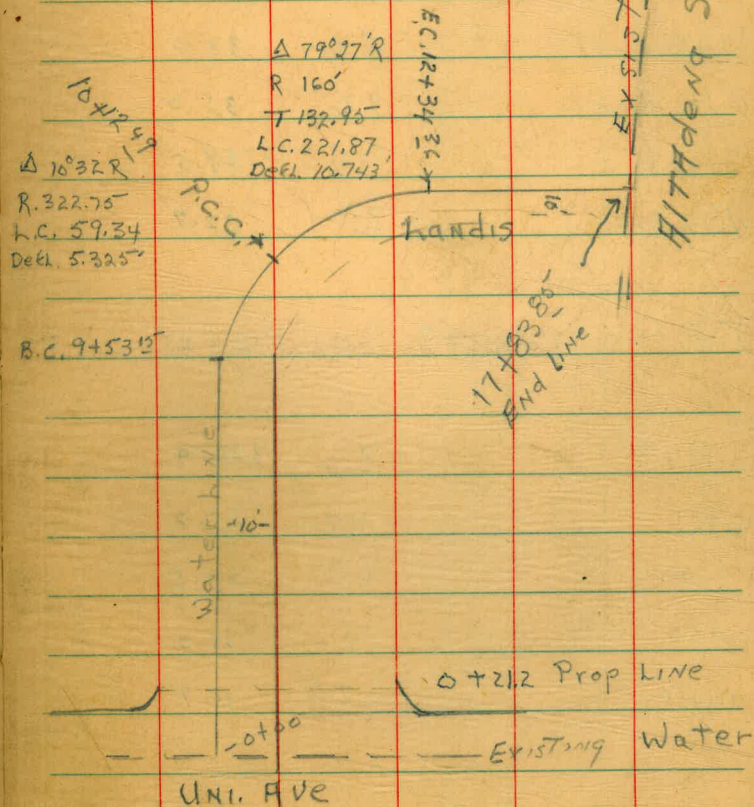 Δ 79°27'R
R 160'
T 132.95
L.C. 221.87
Defl. 10.743'
E.C. 12+34.36
EXIST
AlTAdeNA S
10+12.49
Δ 10°32 R
R. 322.75
L.C. 59.34
Defl. 5.325'
P.C.C.
Landis
10'
B.C. 9+53.15
17+83.85
END LINE
Water Line
-10'-
0+21.2 Prop LINE
-0+00
EXISTING Water
UNI. AVE